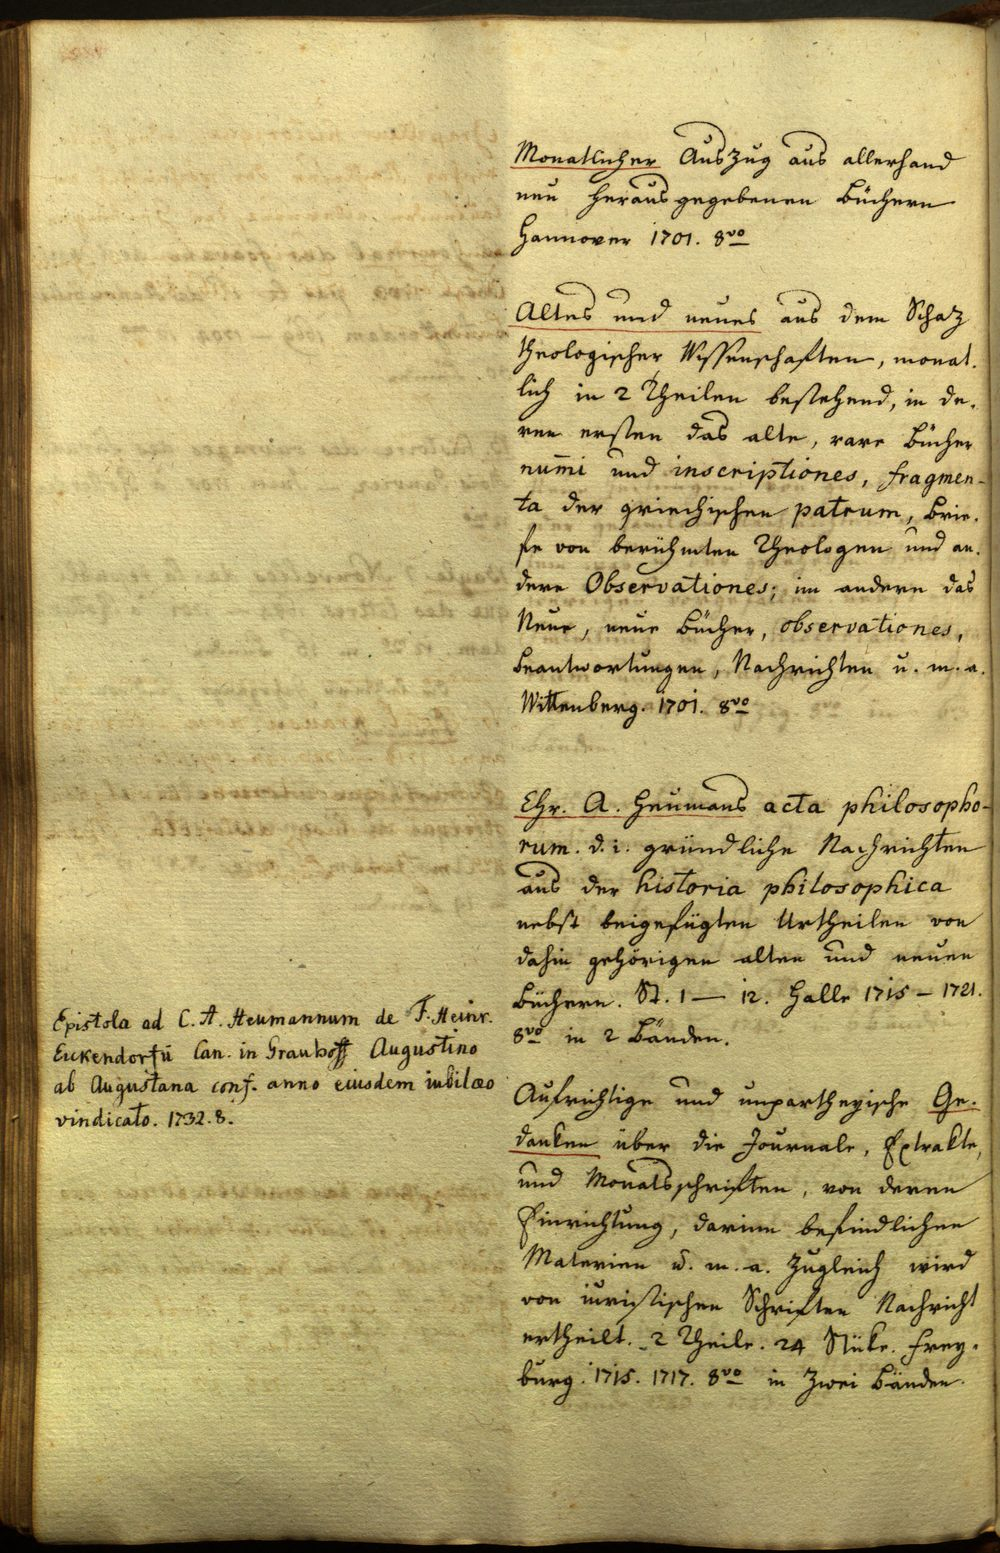 Monatlicher Auszug aus allerhand
neu herausgegebenen Büchern
Hannover 1701. 8vo
Altes und neues aus dem Schatz
theologischer Wissenschaften, monat-
lich in 2 Theilen bestehend, in de-
ren ersten das alte, rare Bücher
num̄i und inscriptiones, fragmen-
ta der griechischen patrum, Brie-
fe von berühmten Theologen und an-
dere Observationes; im andern das
Neue, neue Bücher, observationes,
Beantwortungen, Nachrichten u. m. a.
Wittenberg. 1701. 8vo
Chr. A. Heumans acta philosopho-
rum. d. i. gründliche Nachrichten
aus der historia philosophica
nebst beigefügten Urtheilen von
dahin gehörigen alten und neuen
Büchern. St. 1 — 12. Halle 1715 – 1721.
8vo in 2 Bänden.
Epistola ad C. A. Heumannum de F. Heinr.
Euckendorfii Can. in Grauhoff Augustino
ab Augustana conf. anno eiusdem iubilaeo
vindicato. 1732. 8.
Aufrichtige und unpartheyische Ge-
danken über die Journale, Extrakte,
und Monatsschriften, von deren
Einrichtung, darinn befindlichen
Materien u. m. a. Zugleich wird
von iuristischen Schriften Nachricht
ertheilt. 2 Theile. 24 Stüke. Frey-
burg. 1715. 1717. 8vo in Zwei Bänden.